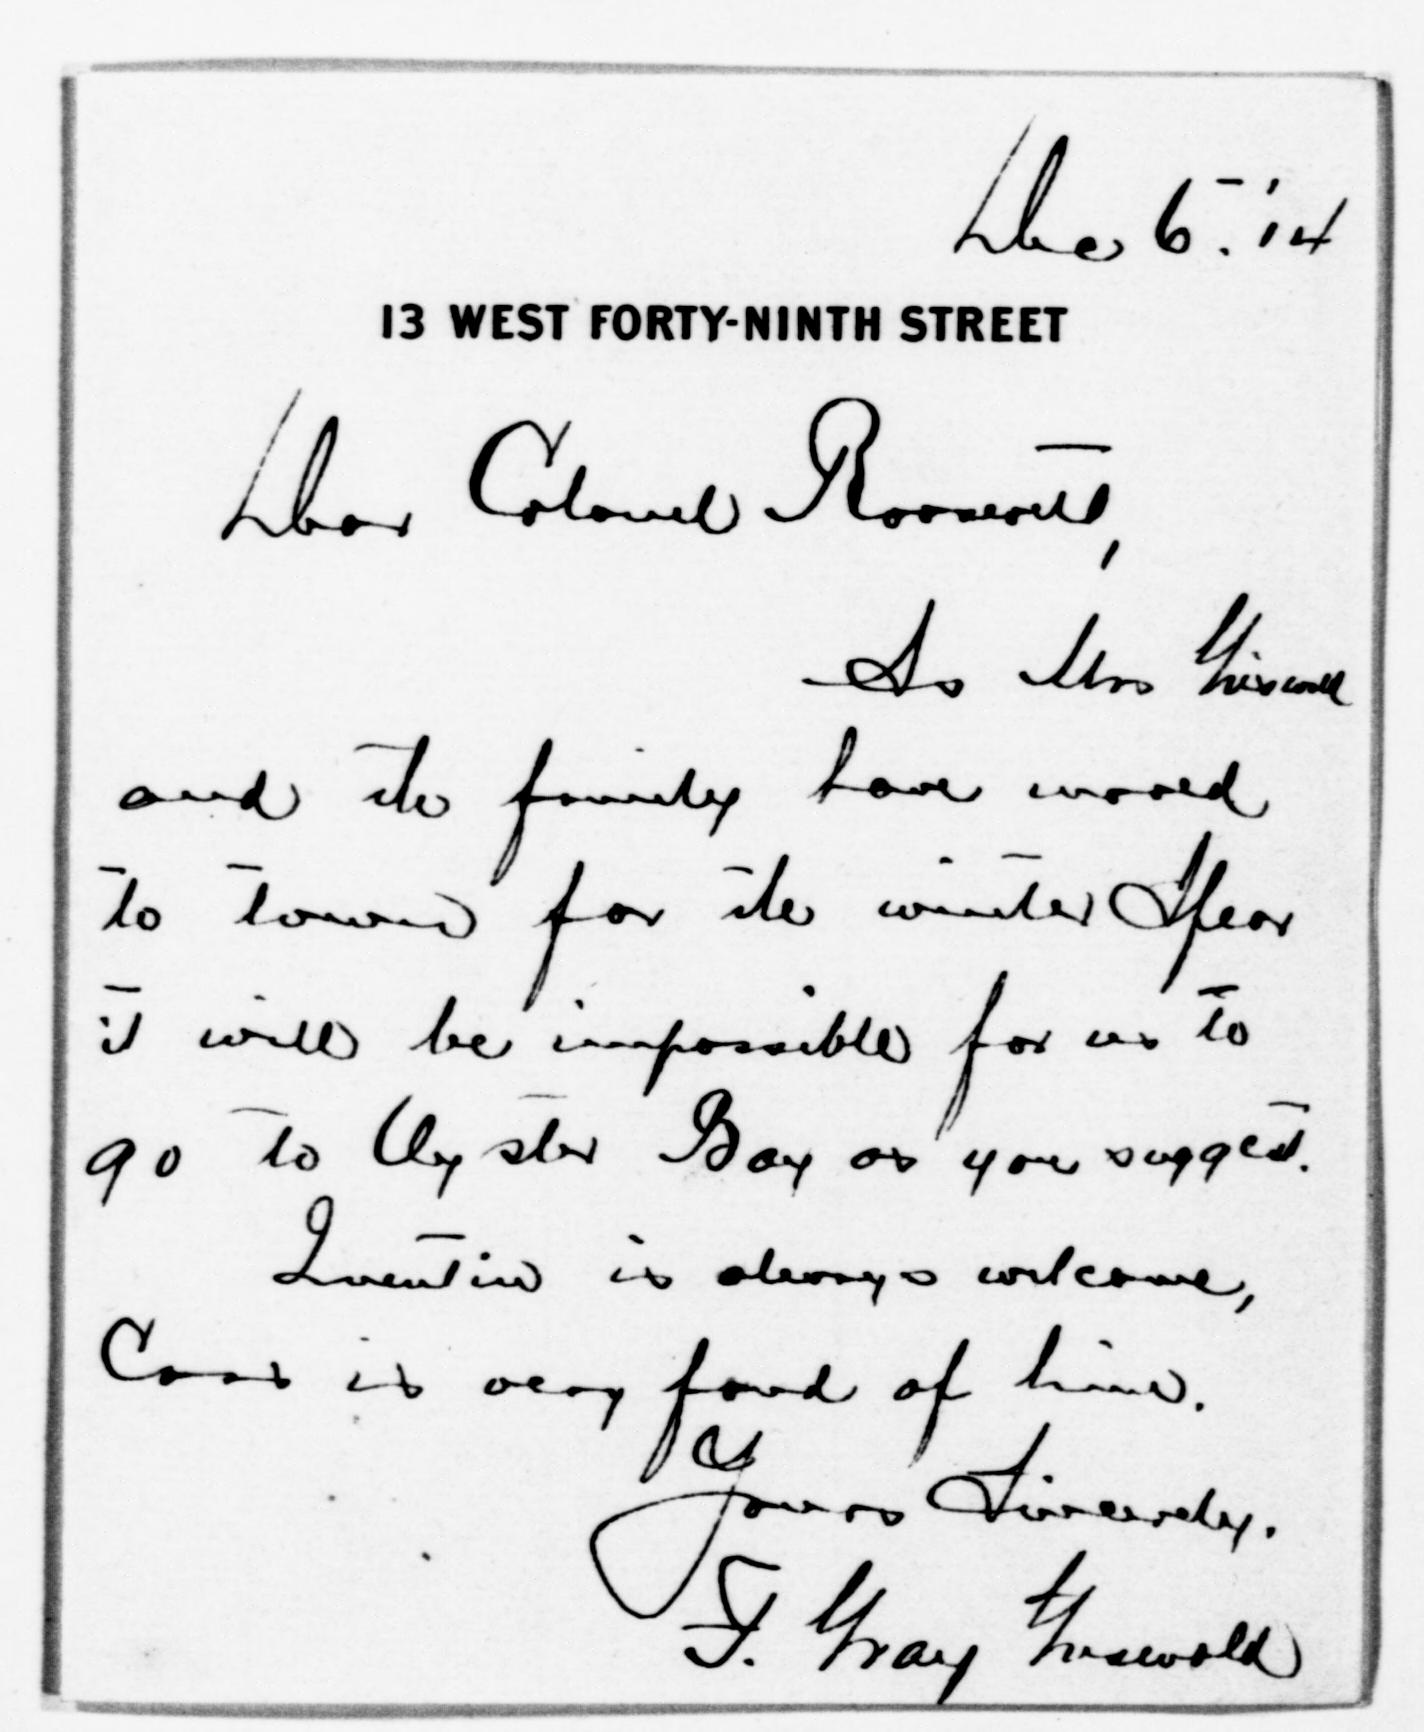 Dec 6. '14
13 WEST FORTY-NINTH STREET
Dear Colonel Roosevelt,
As Mrs Griswold
and the family have moved
to town for the winter I fear
it will be impossible for us to
go to Oyster Bay as you suggest.
Quentin is always welcome,
Cass is very fond of him.
Yours Sincerely.
F. Gray Griswold